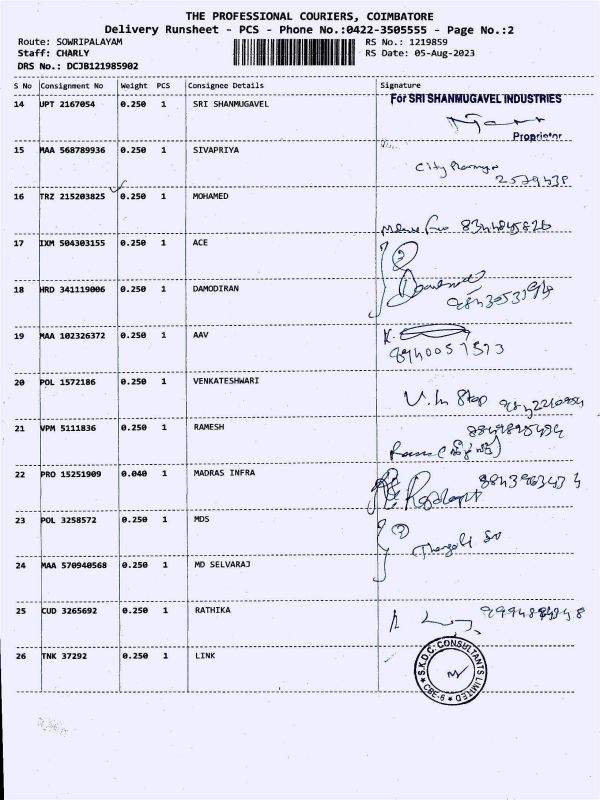 THE PROFESSIONAL COURIERS, COIMBATORE
Delivery Runsheet - PCS - Phone No.:0422-3505555 - Page No.:2
Route: SOWRIPALAYAM RS No.: 1219859
Staff: CHARLY RS Date: 05-Aug-2023
DRS No.: DCJB121985902
S No Consignment No Weight PCS Consignee Details Signature
14 UPT 2167054 0.250 1 SRI SHANMUGAVEL For SRI SHANMUGAVEL INDUSTRIES
Proprietor
15 MAA 568789936 0.250 1 SIVAPRIYA
16 TRZ 215203825 0.250 1 MOHAMED
17 IXM 504303155 0.250 1 ACE
18 HRD 341119006 0.250 1 DAMODIRAN
19 MAA 102326372 0.250 1 AAV
20 POL 1572186 0.250 1 VENKATESHWARI
21 VPM 5111836 0.250 1 RAMESH
22 PRO 15251909 0.040 1 MADRAS INFRA
23 POL 3258572 0.250 1 MDS
24 MAA 570940568 0.250 1 MD SELVARAJ
25 CUD 3265692 0.250 1 RATHIKA
26 TNK 37292 0.250 1 LINK
S.K.D.C. CONSULTANTS LIMITED
CBE-6